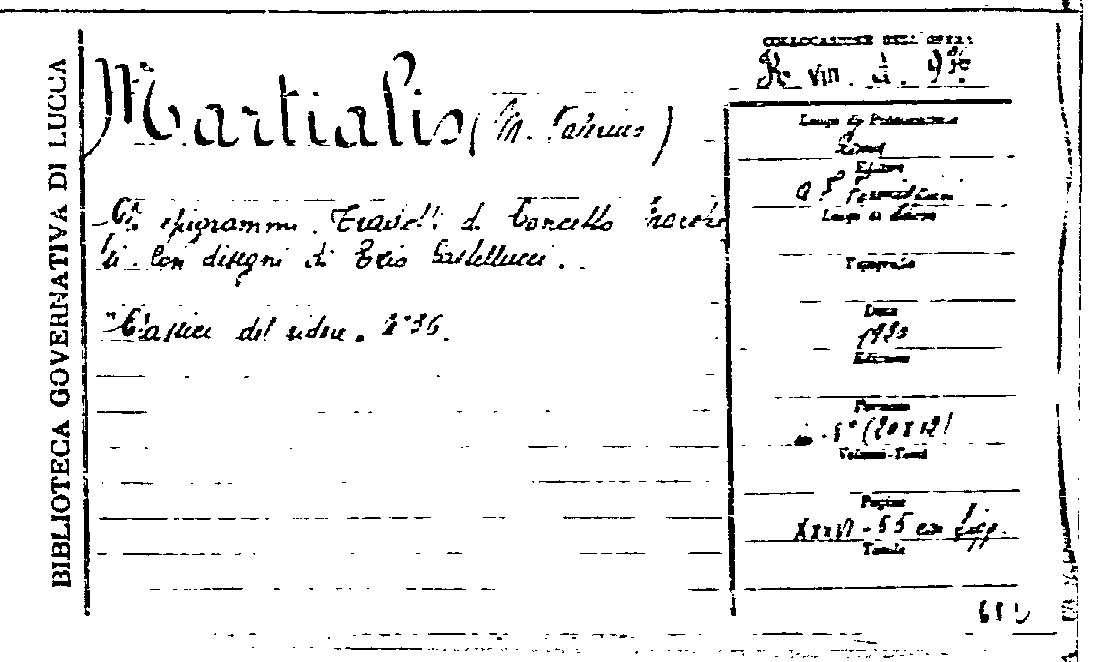 BIBLIOTECA GOVERNATIVA DI LUCCA
Martialis (M. Valerius)
Gli epigrammi. Tradott. di Concetto Marche
si. Con disegni di Ezio Castellucci.
"Classici del ridere. N° 36.
COLLOCAZIONE DELL'OPERA
VIII.
Luogo di Pubblicazione
Roma
Editore
A. F. Formiggini
Luogo di Edizione
Tipografia
Data
1920
Edizione
Formato
in - 8° (20 X 12)
Volume-Tomi
Pagine
XXXVI - 55 con figg.
Tavole